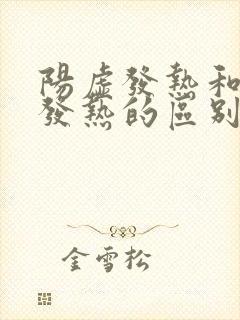 陽虛發熱和
發熱的區別
金雪松